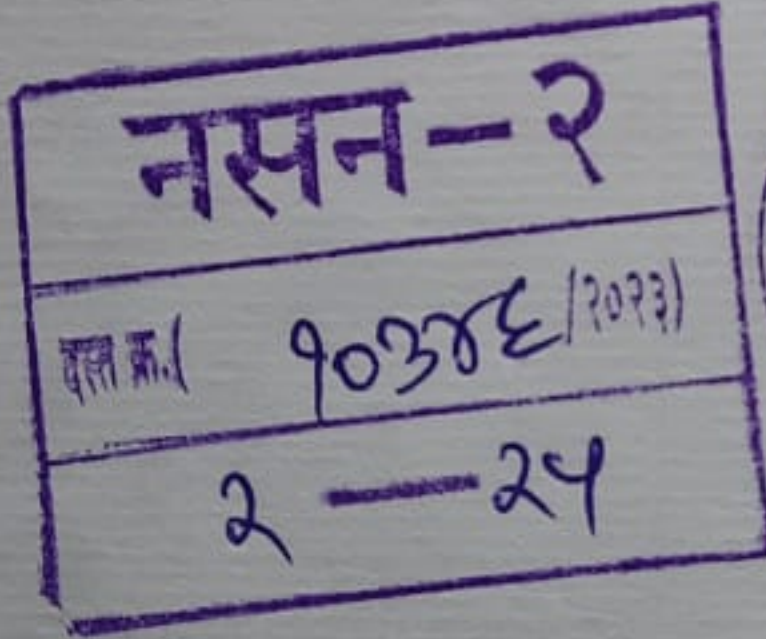 नसन-२
दस्त क्र.( १०३४६/२०२३)
२ — २५